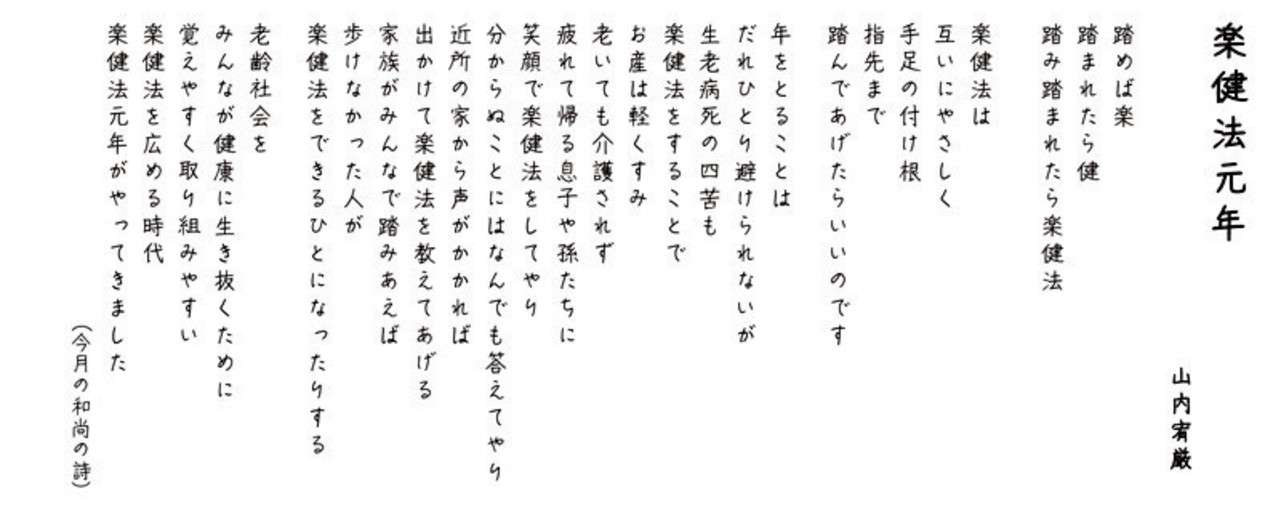 楽健法元年
山内宥厳
踏めば楽
踏まれたら健
踏み踏まれたら楽健法
楽健法は
互いにやさしく
手足の付け根
指先まで
踏んであげたらいいのです
年をとることは
だれひとり避けられないが
生老病死の四苦も
楽健法をすることで
お産は軽くすみ
老いても介護されず
疲れて帰る息子や孫たちに
笑顔で楽健法をしてやり
分からぬことにはなんでも答えてやり
近所の家から声がかかれば
出かけて楽健法を教えてあげる
家族がみんなで踏みあえば
歩けなかった人が
楽健法をできるひとになったりする
老齢社会を
みんなが健康に生き抜くために
覚えやすく取り組みやすい
楽健法を広める時代
楽健法元年がやってきました
(今月の和尚の詩)